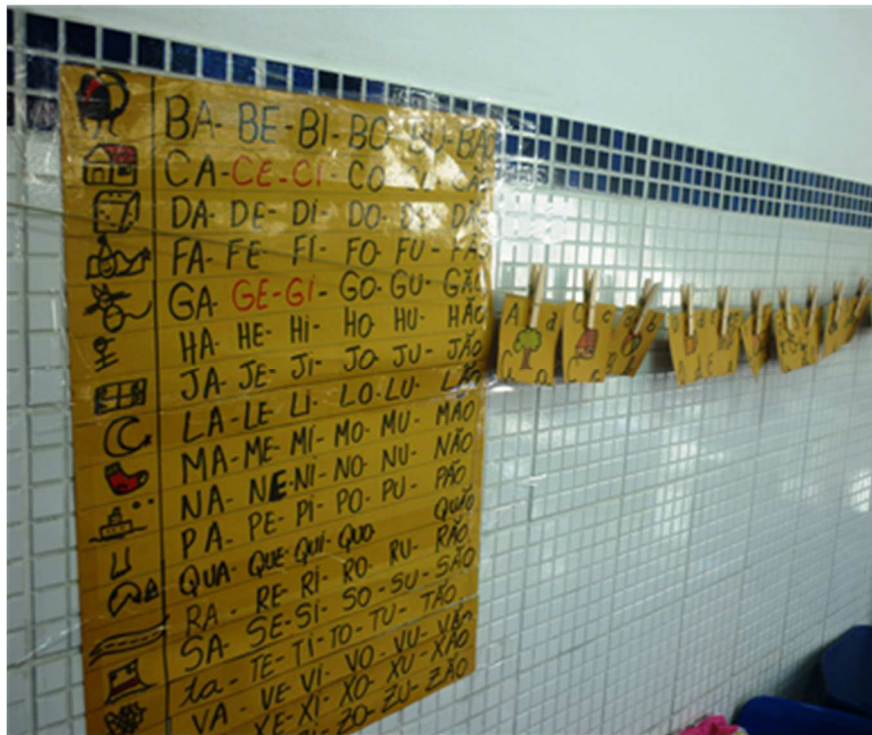 BA- BE- BI- BO- BU- BÃO
CA- CE- CI- CO CU- CÃO
DA- DE- DI- DO- DU- DÃO
FA- FE- FI- FO- FU - FÃO
GA- GE- GI- GO- GU- GÃO
HA- HE- Hi- HO HU- HÃO
JA- JE- Ji- JO JU- JÃO
LA- LE LI- LO- LU- LÃO
MA- ME- MI- MO- MU- MÃO
NA- NE- NI- NO- NU- NÃO
PA- PE- Pi- PO- PU- PÃO
QUA- QUE- QUI- QUO QUÃO
RA- RE- RI- RO- RU- RÃO
SA- SE- SI- SO - SU - SÃO
ta- TE- TI- TO- TU- TÃO
VA - VE VI- VO- VU- VÃO
XE- XI- XO- XU- XÃO
ZO- ZU- ZÃO
A a
C c